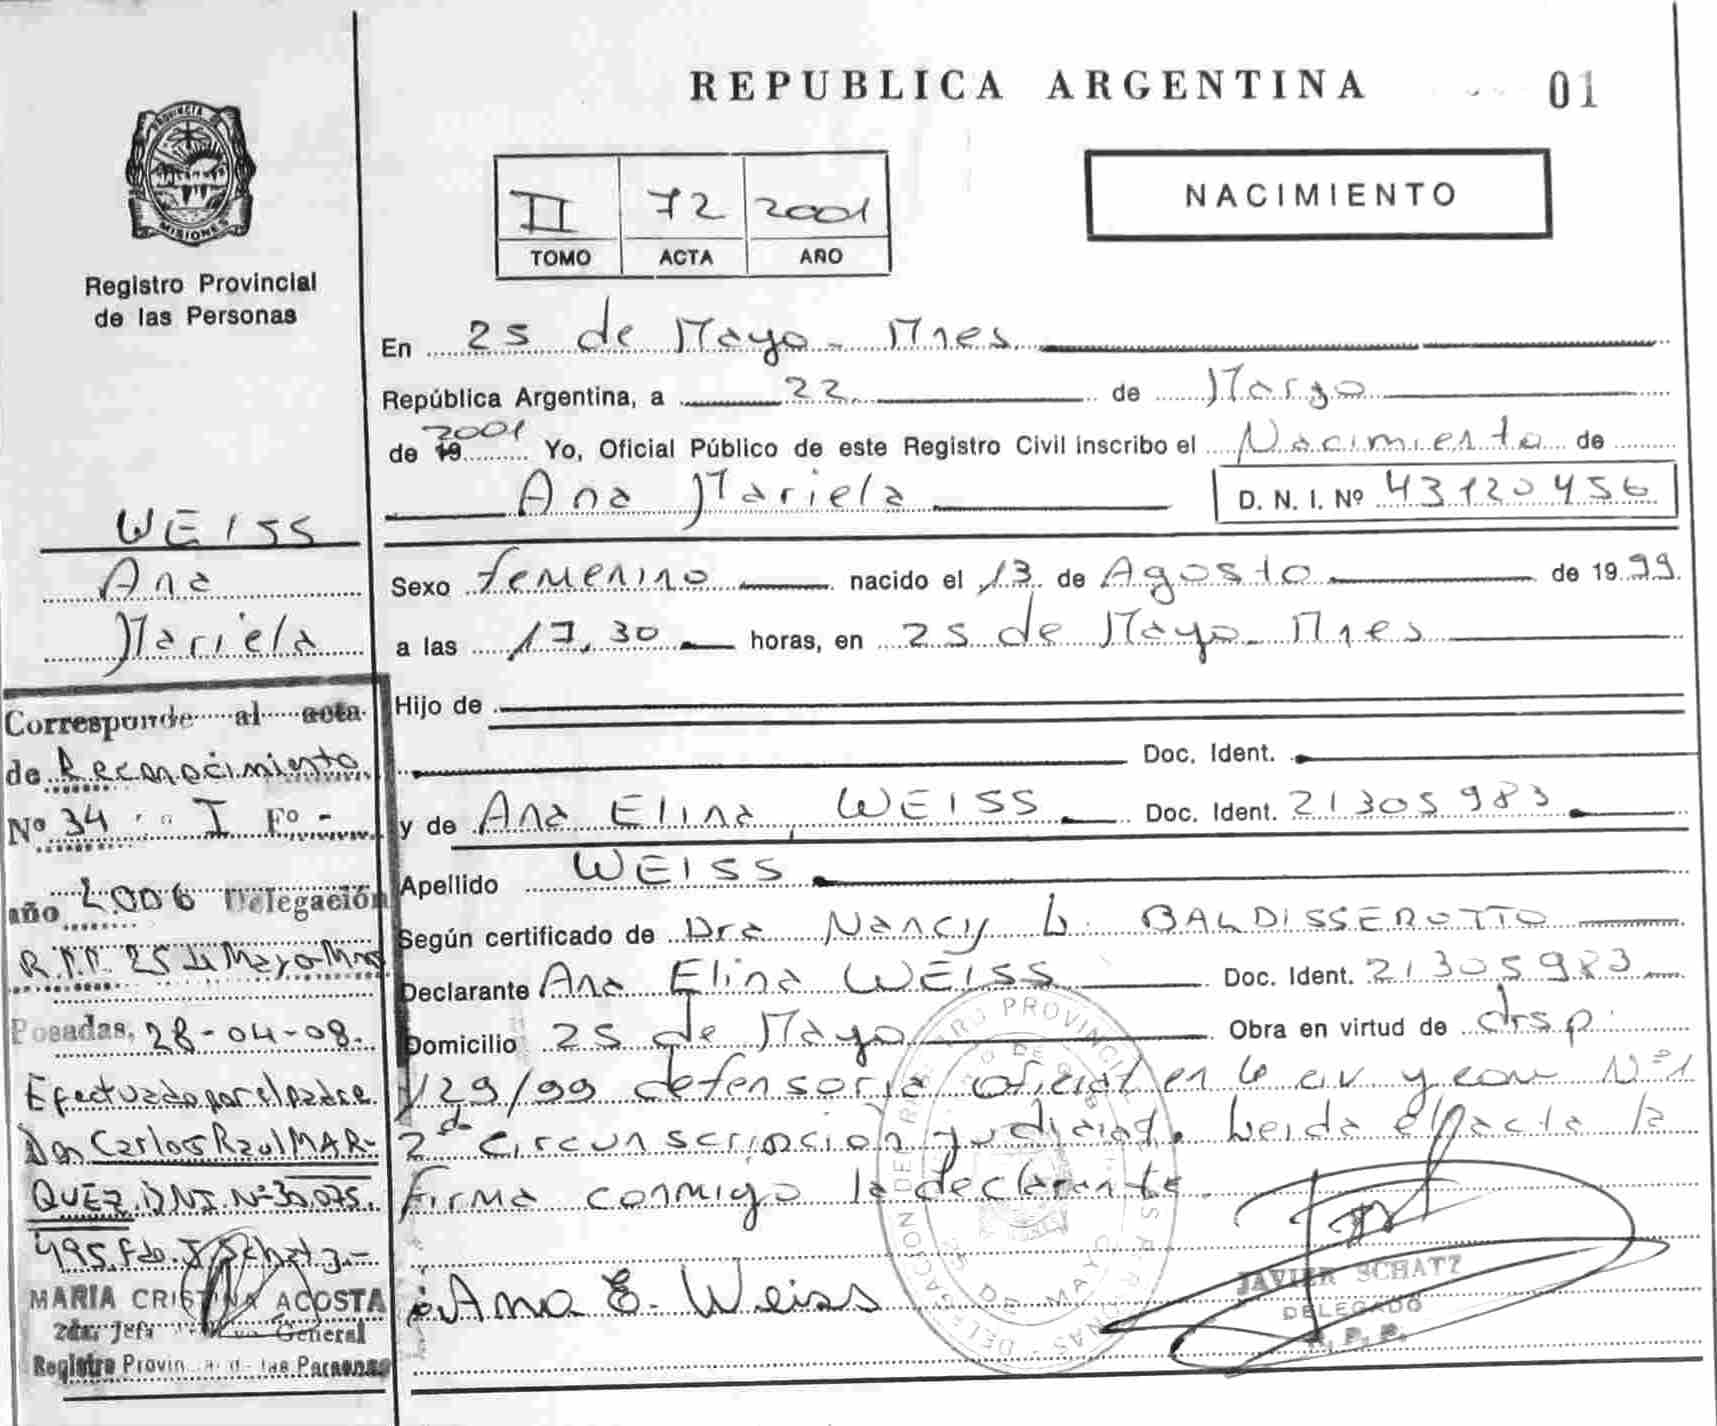 REPUBLICA ARGENTINA
01
PROVINCIA DE
MISIONES
Registro Provincial
de las Personas
II 72 2001
TOMO ACTA AÑO
NACIMIENTO
En 25 de Mayo - Mnes
República Argentina, a 22 de Marzo
de 19 2001 Yo, Oficial Público de este Registro Civil inscribo el Nacimiento de
Ana Mariela D. N. I. Nº 43120456
WEISS
Ana
Mariela
Sexo femenino nacido el 13 de Agosto de 1999
a las 17,30 horas, en 25 de Mayo - Mnes
Hijo de
Doc. Ident.
y de Ana Elina, WEISS Doc. Ident. 21305983
Apellido WEISS
Según certificado de Dra Nancy L. BALDISSEROTTO
Declarante Ana Elina WEISS Doc. Ident. 21305983
Domicilio 25 de Mayo Obra en virtud de drsp.
1/29/99 defensoria oficial en lo civ y com Nº1
2da circunscripcion judicial. Leida el acta la
firma conmigo la declarante.
Ana E. Weiss
JAVIER SCHATZ
DELEGADO
R. P. P.
Corresponde al acta
de Reconocimiento
Nº 34 I Fº -
año 2.006 Delegación
R.P.P. 25 de Mayo-Mnes
Posadas, 28-04-08.
Efectuado por el padre
Don Carlos Raul MAR-
QUEZ. DNI. Nº 30.075.
495. Fdo. J. Schatz.-
MARIA CRISTINA ACOSTA
2da. Jefa General
Registro Provincial de las Personas